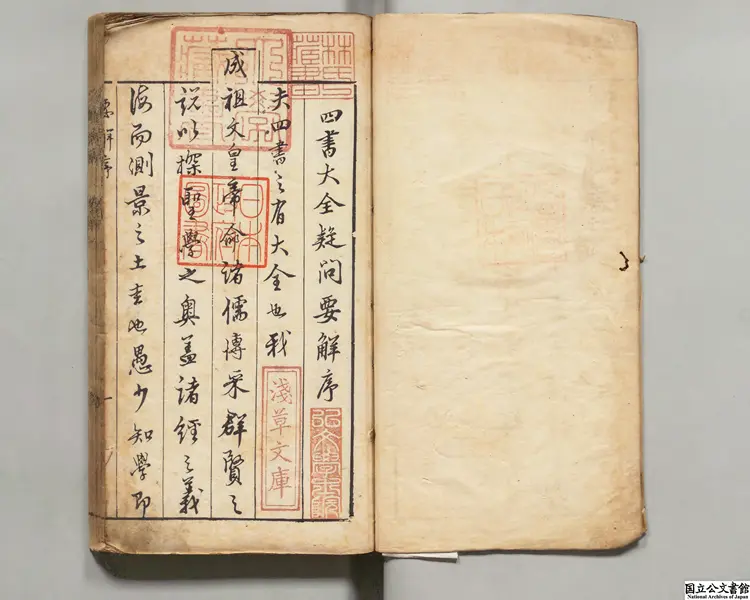 四書大全疑問要解序
夫四書之有大全也我
成祖文皇帝命諸儒博采群賢之
說以探聖學之奧蓋諸經之義
海而測景之土圭也愚少知學即
要解序
林氏藏書
日本政府圖書
淺草文庫
弘文學士院
国立公文書館
National Archives of Japan